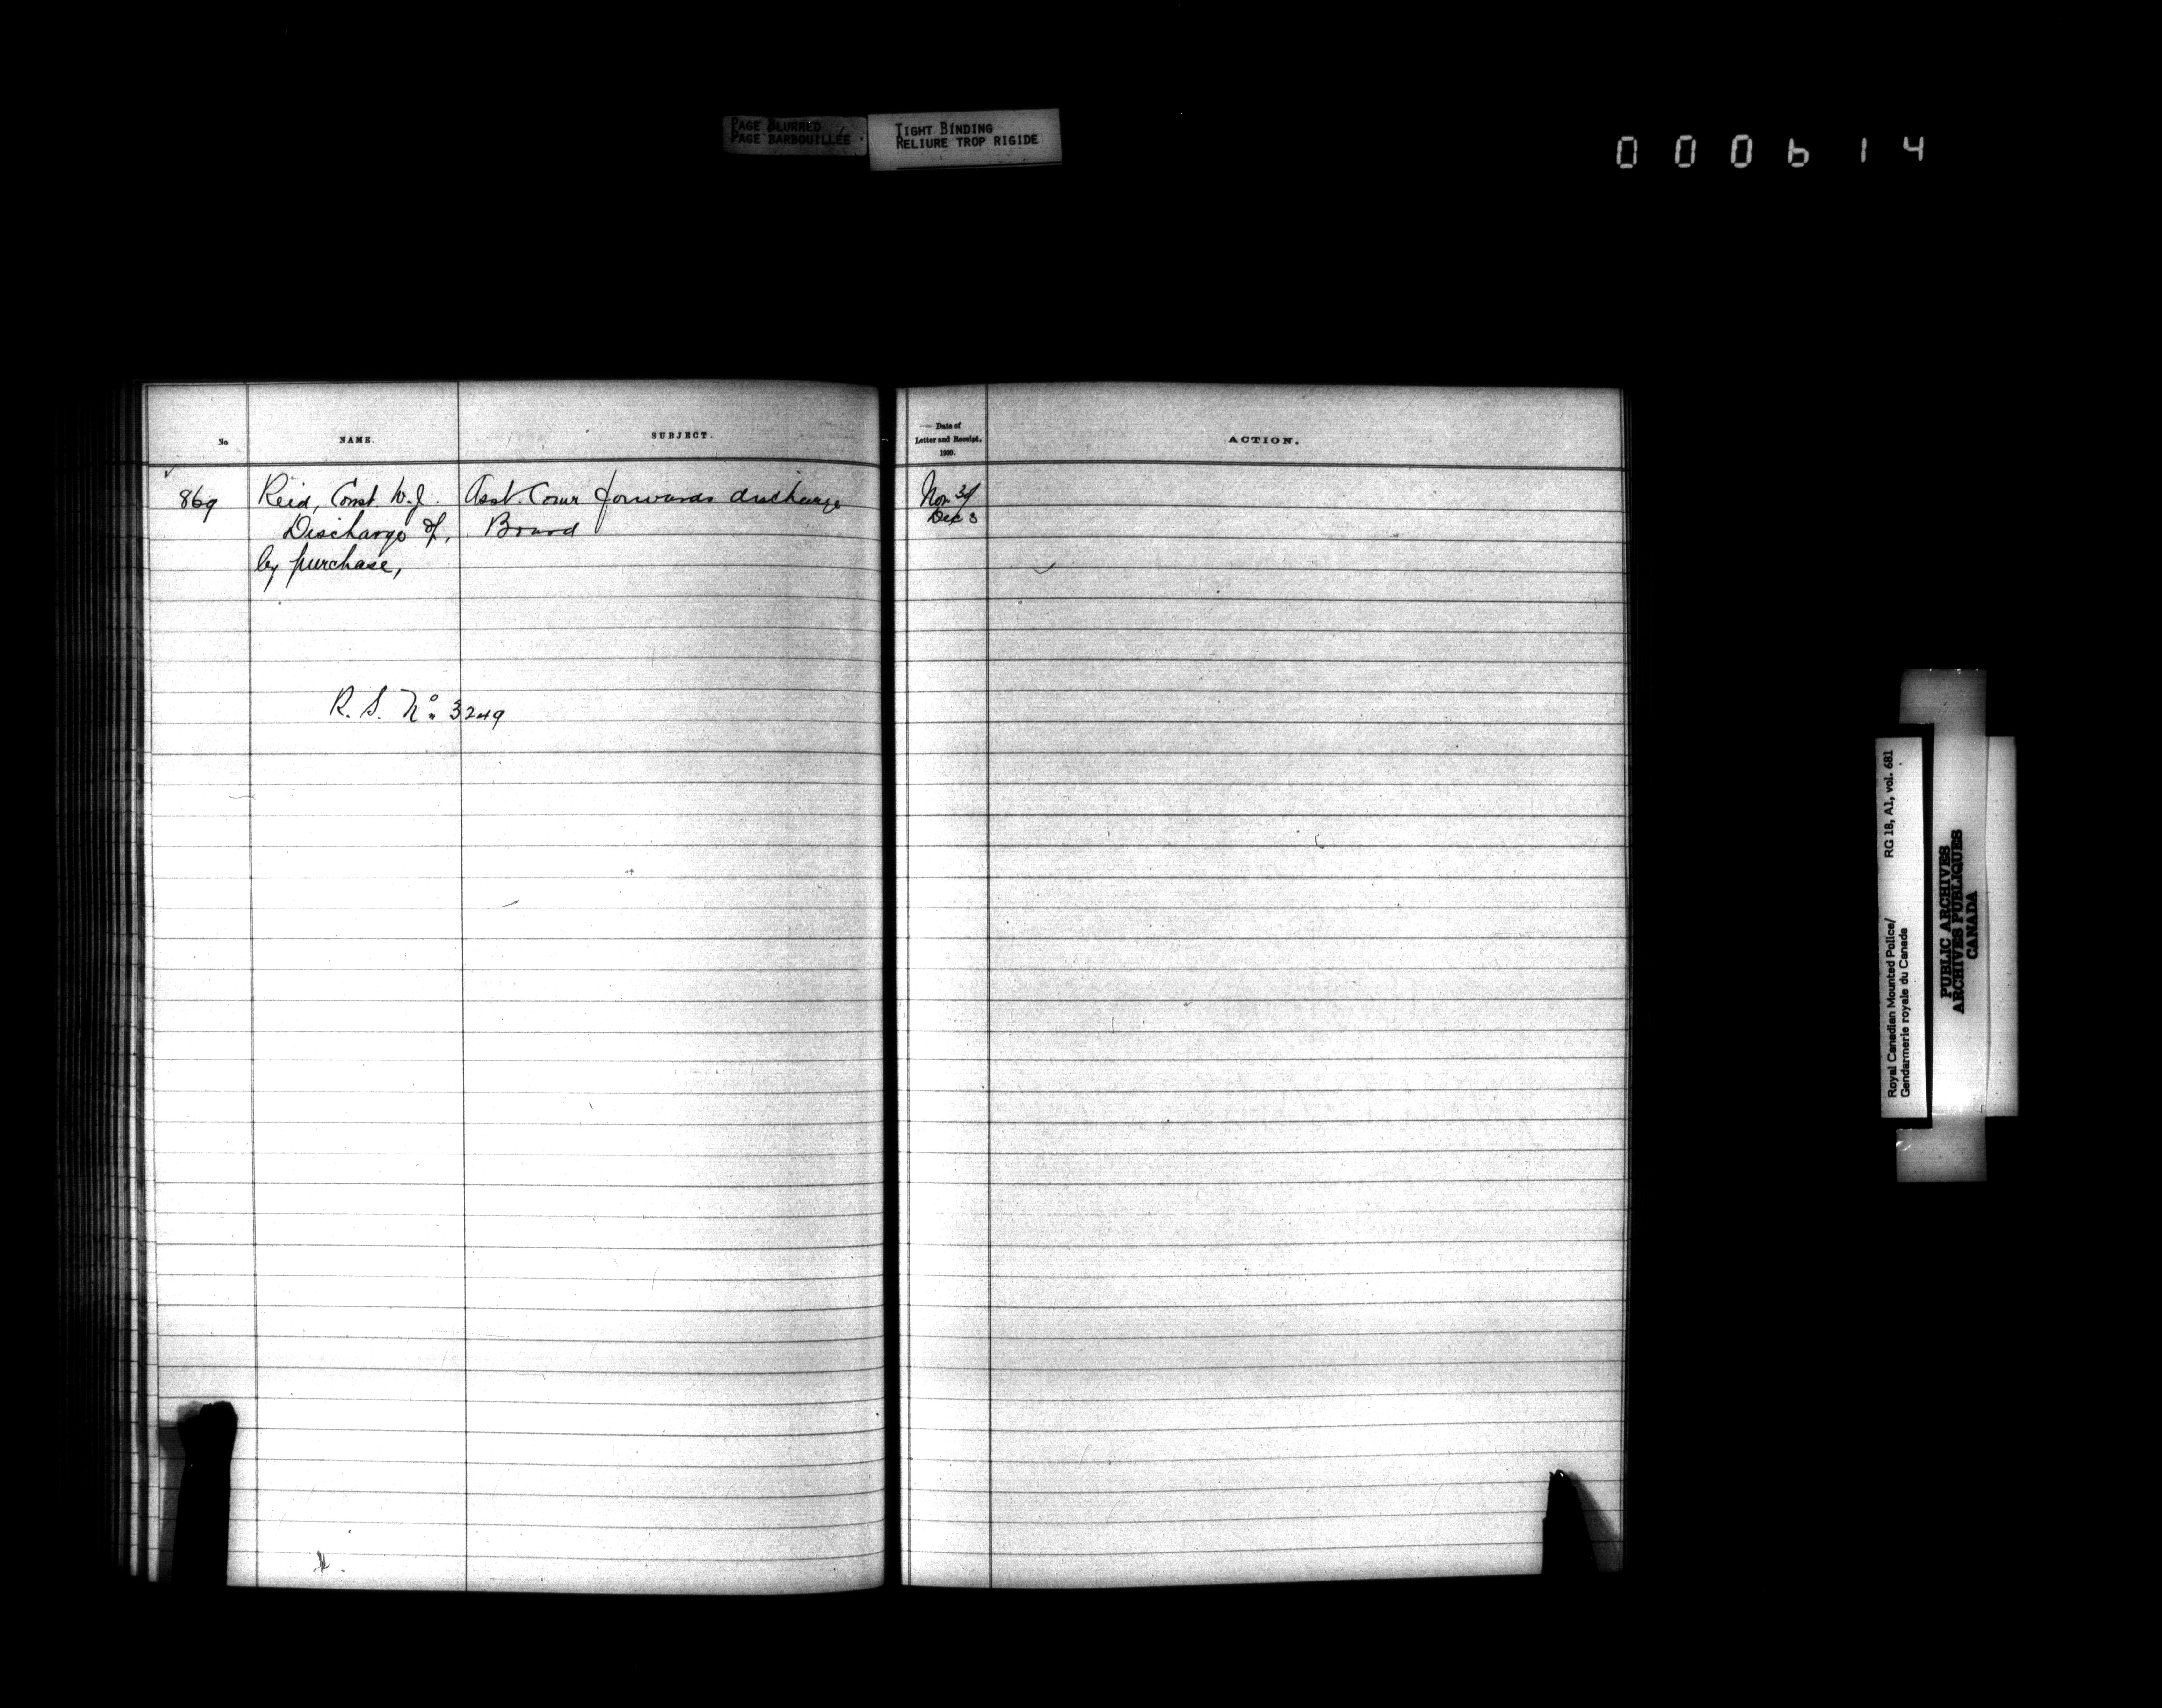 PAGE BLURRED
PAGE BARBOUILLÉE
TIGHT BINDING
RELIURE TROP RIGIDE
000614
No
NAME.
SUBJECT.
Date of
Letter and Receipt.
1900.
ACTION.
869
Reid, Const. W.J.
Discharge of,
by purchase,
Asst. Comr. forwards discharge
Board
Nov. 30
Dec 3
R. S. No. 3249
Royal Canadian Mounted Police/ RG 18, A1, vol. 681
Gendarmerie royale du Canada
PUBLIC ARCHIVES
ARCHIVES PUBLIQUES
CANADA